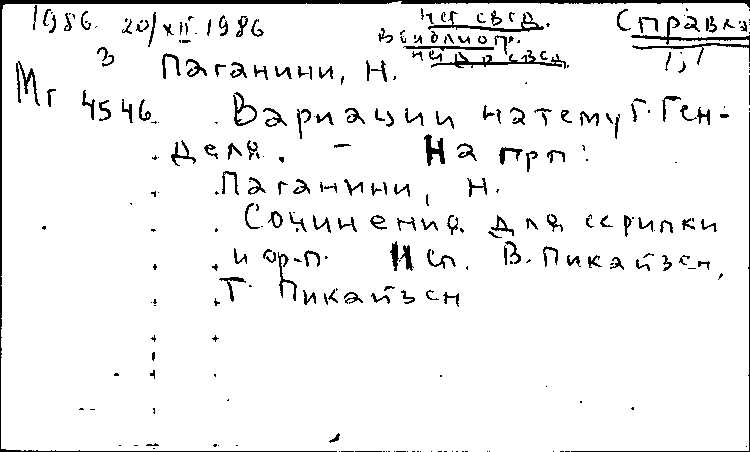 1986. 20/XII. 1986
Нет свед.
Справка
в библиогр.
нет др свед.
3 Паганини, Н.
Мг 4546. Вариации на тему Г. Ген-
деля. – На прп:
Паганини, Н.
Сочинения для скрипки
и ор-п. Исп. В. Пикайзен,
Т. Пикайзен